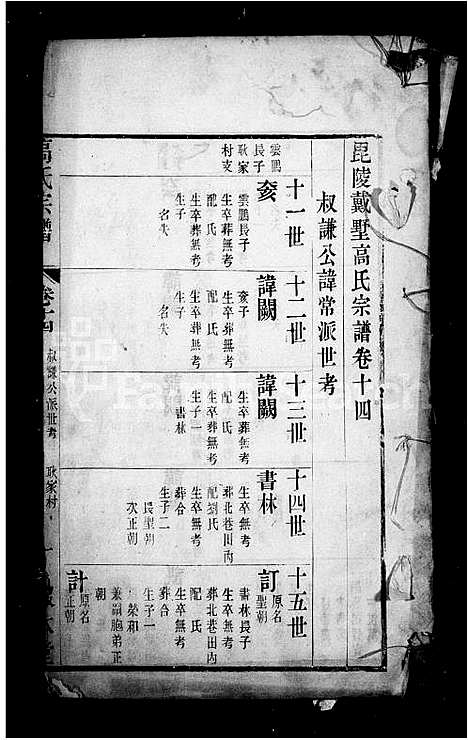 毘陵戴墅高氏宗譜卷十四
叔謙公諱常派世考
雲鵬
長子
耿家
村支
十一世
奒
雲鵬長子
生卒葬無考
配氏
生卒葬無考
生子一
名失
十二世
諱闕
奒子
生卒葬無考
配氏
生卒葬無考
生子一
名失
十三世
諱闕
生卒葬無考
配氏
生卒葬無考
生子一
書林
十四世
書林
生卒無考
葬北巷田內
配劉氏
生卒無考
葬合
生子二
長聖朝
次正朝
十五世
訂
原名
聖朝
書林長子
生卒無考
葬北巷田內
配氏
生卒無考
葬合
生子一
榮和
兼嗣胞弟正
朝
計
原名
正朝
高氏宗譜
卷十四
叔謙公派世考
耿家村